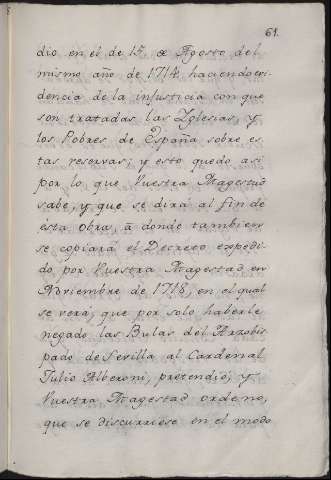 61.
dio en el de 15 de Agosto del
mismo año de 1714, haciendo evi
dencia de la injusticia con que
son tratadas las Yglesias, y
los Pobres de España sobre es
tas reservas; y esto quedo asi
por lo que Vuestra Magestad
sabe, y que se dirá al fin de
esta obra, á donde tambien
se copiará el Decreto expedi
do por Vuestra Magestad en
Noviembre de 1718, en el qual
se verá, que por solo haberle
negado las Bulas del Arzobis
pado de Sevilla al Cardenal
Julio Alberoni, pretendió, y
Vuestra Magestad ordenó,
que se discurriese en el modo